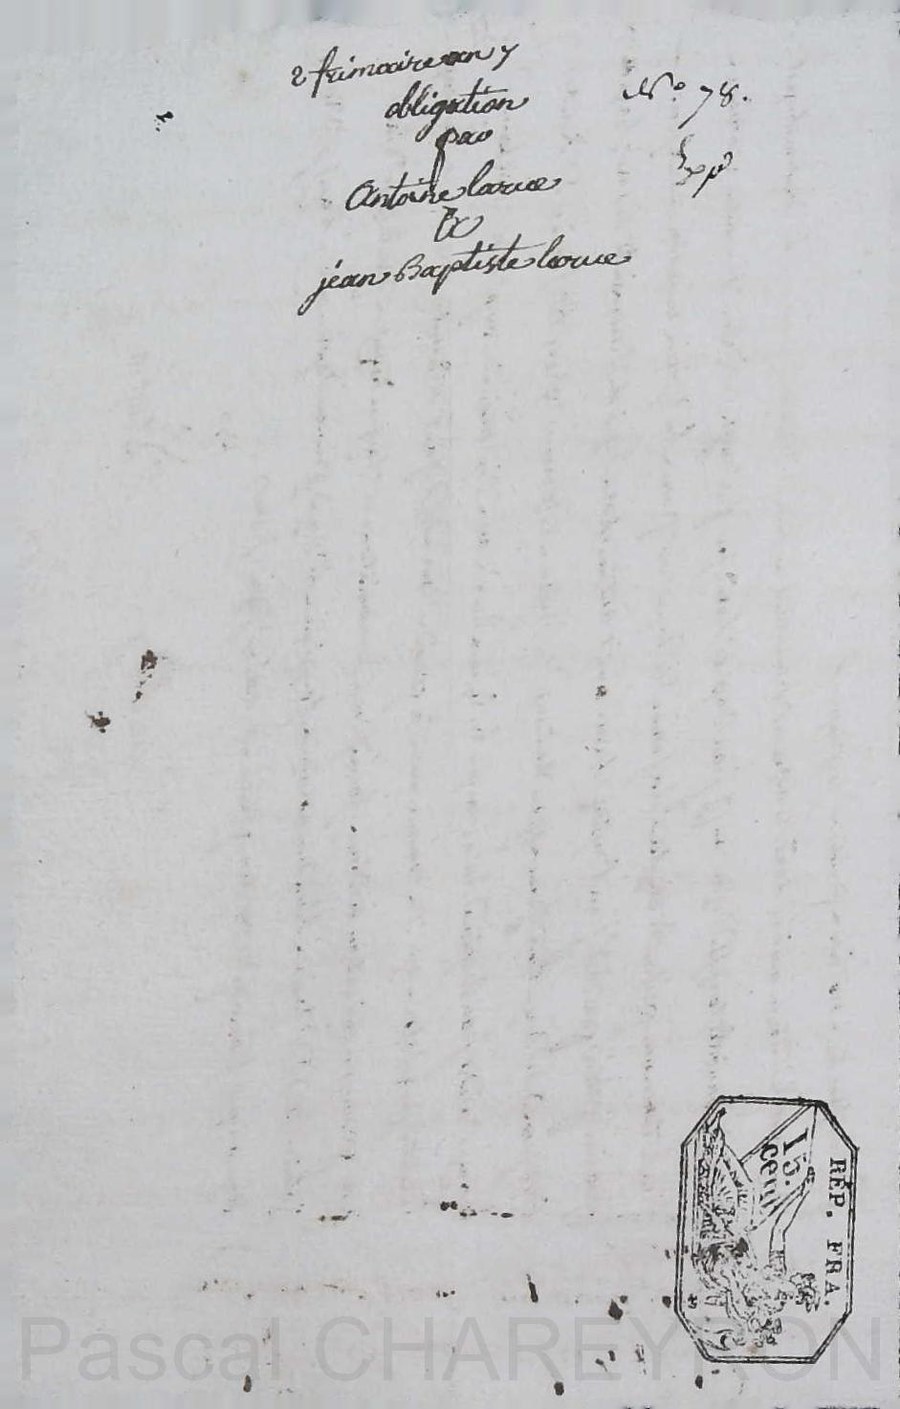 2 frimaire an 7
obligation
par
Antoine larue
Et
jéan Baptiste larue
N.o 78.
REP. FRA.
15.
cent
Pascal CHAREYRON